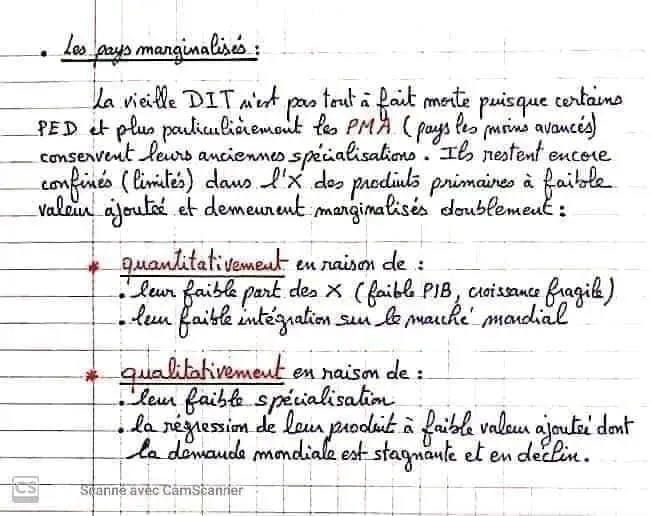 • Les pays marginalisés :
La vieille DIT n'est pas tout à fait morte puisque certains
PED et plus particulièrement les PMA (pays les moins avancés)
conservent leurs anciennes spécialisations. Ils restent encore
confinés (limités) dans l'X des produits primaires à faible
valeur ajoutée et demeurent marginalisés doublement :
* quantitativement en raison de :
• leur faible part des X (faible PIB, croissance fragile)
• leur faible intégration sur le marché mondial
* qualitativement en raison de :
• leur faible spécialisation
• la régression de leur produit à faible valeur ajoutée dont
la demande mondiale est stagnante et en déclin.
CS Scanné avec CamScanner